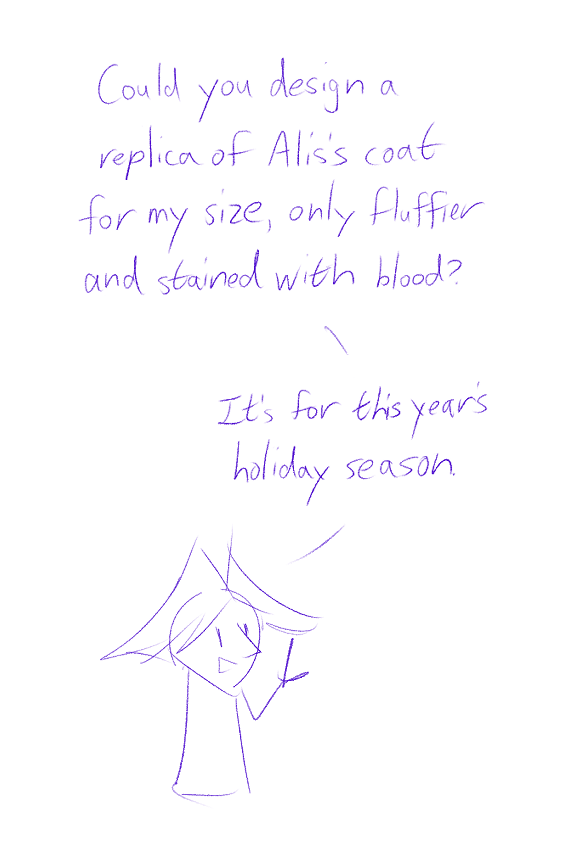 Could you design a
replica of Alis's coat
for my size, only fluffier
and stained with blood?
It's for this year's
holiday season.